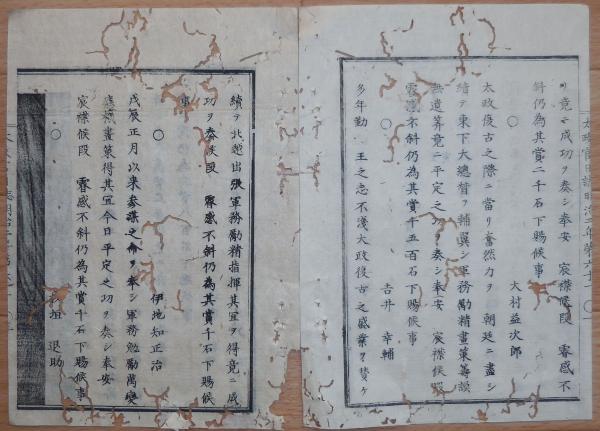 ヲ竟ニ成功ヲ奏シ奉安　宸襟候段　睿感不
斜仍為其賞二千石下賜候事
○　大村益次郎
太政復古之際ニ当リ奮然力ヲ　朝廷ニ盡シ
續テ東下大總督ヲ輔翼シ軍務勵精畫策籌謀
無遺算竟ニ平定之功ヲ奏シ奉安　宸襟候段
睿感不斜仍為其賞千五百石下賜候事
○　吉井　幸輔
多年勤　王之志不淺大政復古之盛業ヲ賛ケ
續テ北越出張軍務勵精指揮其宜ヲ得竟ニ成
功ヲ奏候段　睿感不斜仍為其賞千石下賜候
事
○　伊地知正治
戊辰正月以来参謀之命ヲ奉シ軍務勉勵萬變
應畫策得其宜今日平定之功ヲ奏シ奉安
宸襟候段　睿感不斜仍為其賞千石下賜候事
○　垣　退助